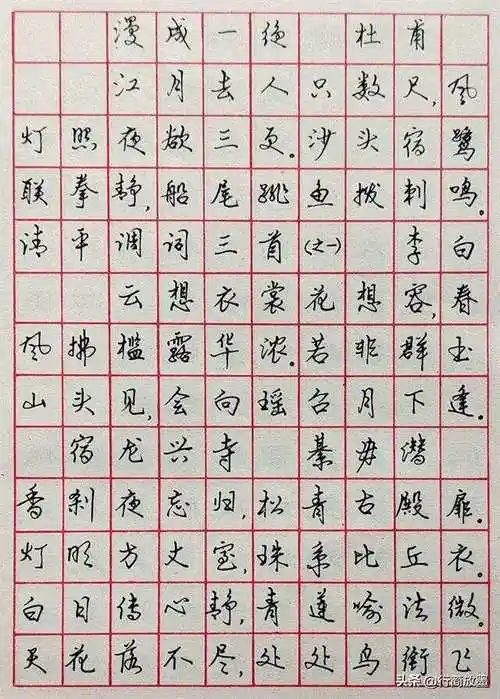 漫成一绝 杜甫
江月去人只数尺，风
灯照夜欲三更。沙头宿鹭
联拳静，船尾跳鱼拨刺鸣。
清平调词三首（之一） 李白
云想衣裳花想容，春
风拂槛露华浓。若非群玉
山头见，会向瑶台月下逢。
宿龙兴寺 綦毋潜
香刹夜忘归，松青古殿扉。
灯明方丈室，珠系比丘衣。
白日传心静，青莲喻法微。
天花落不尽，处处鸟衔飞
头条@行商放